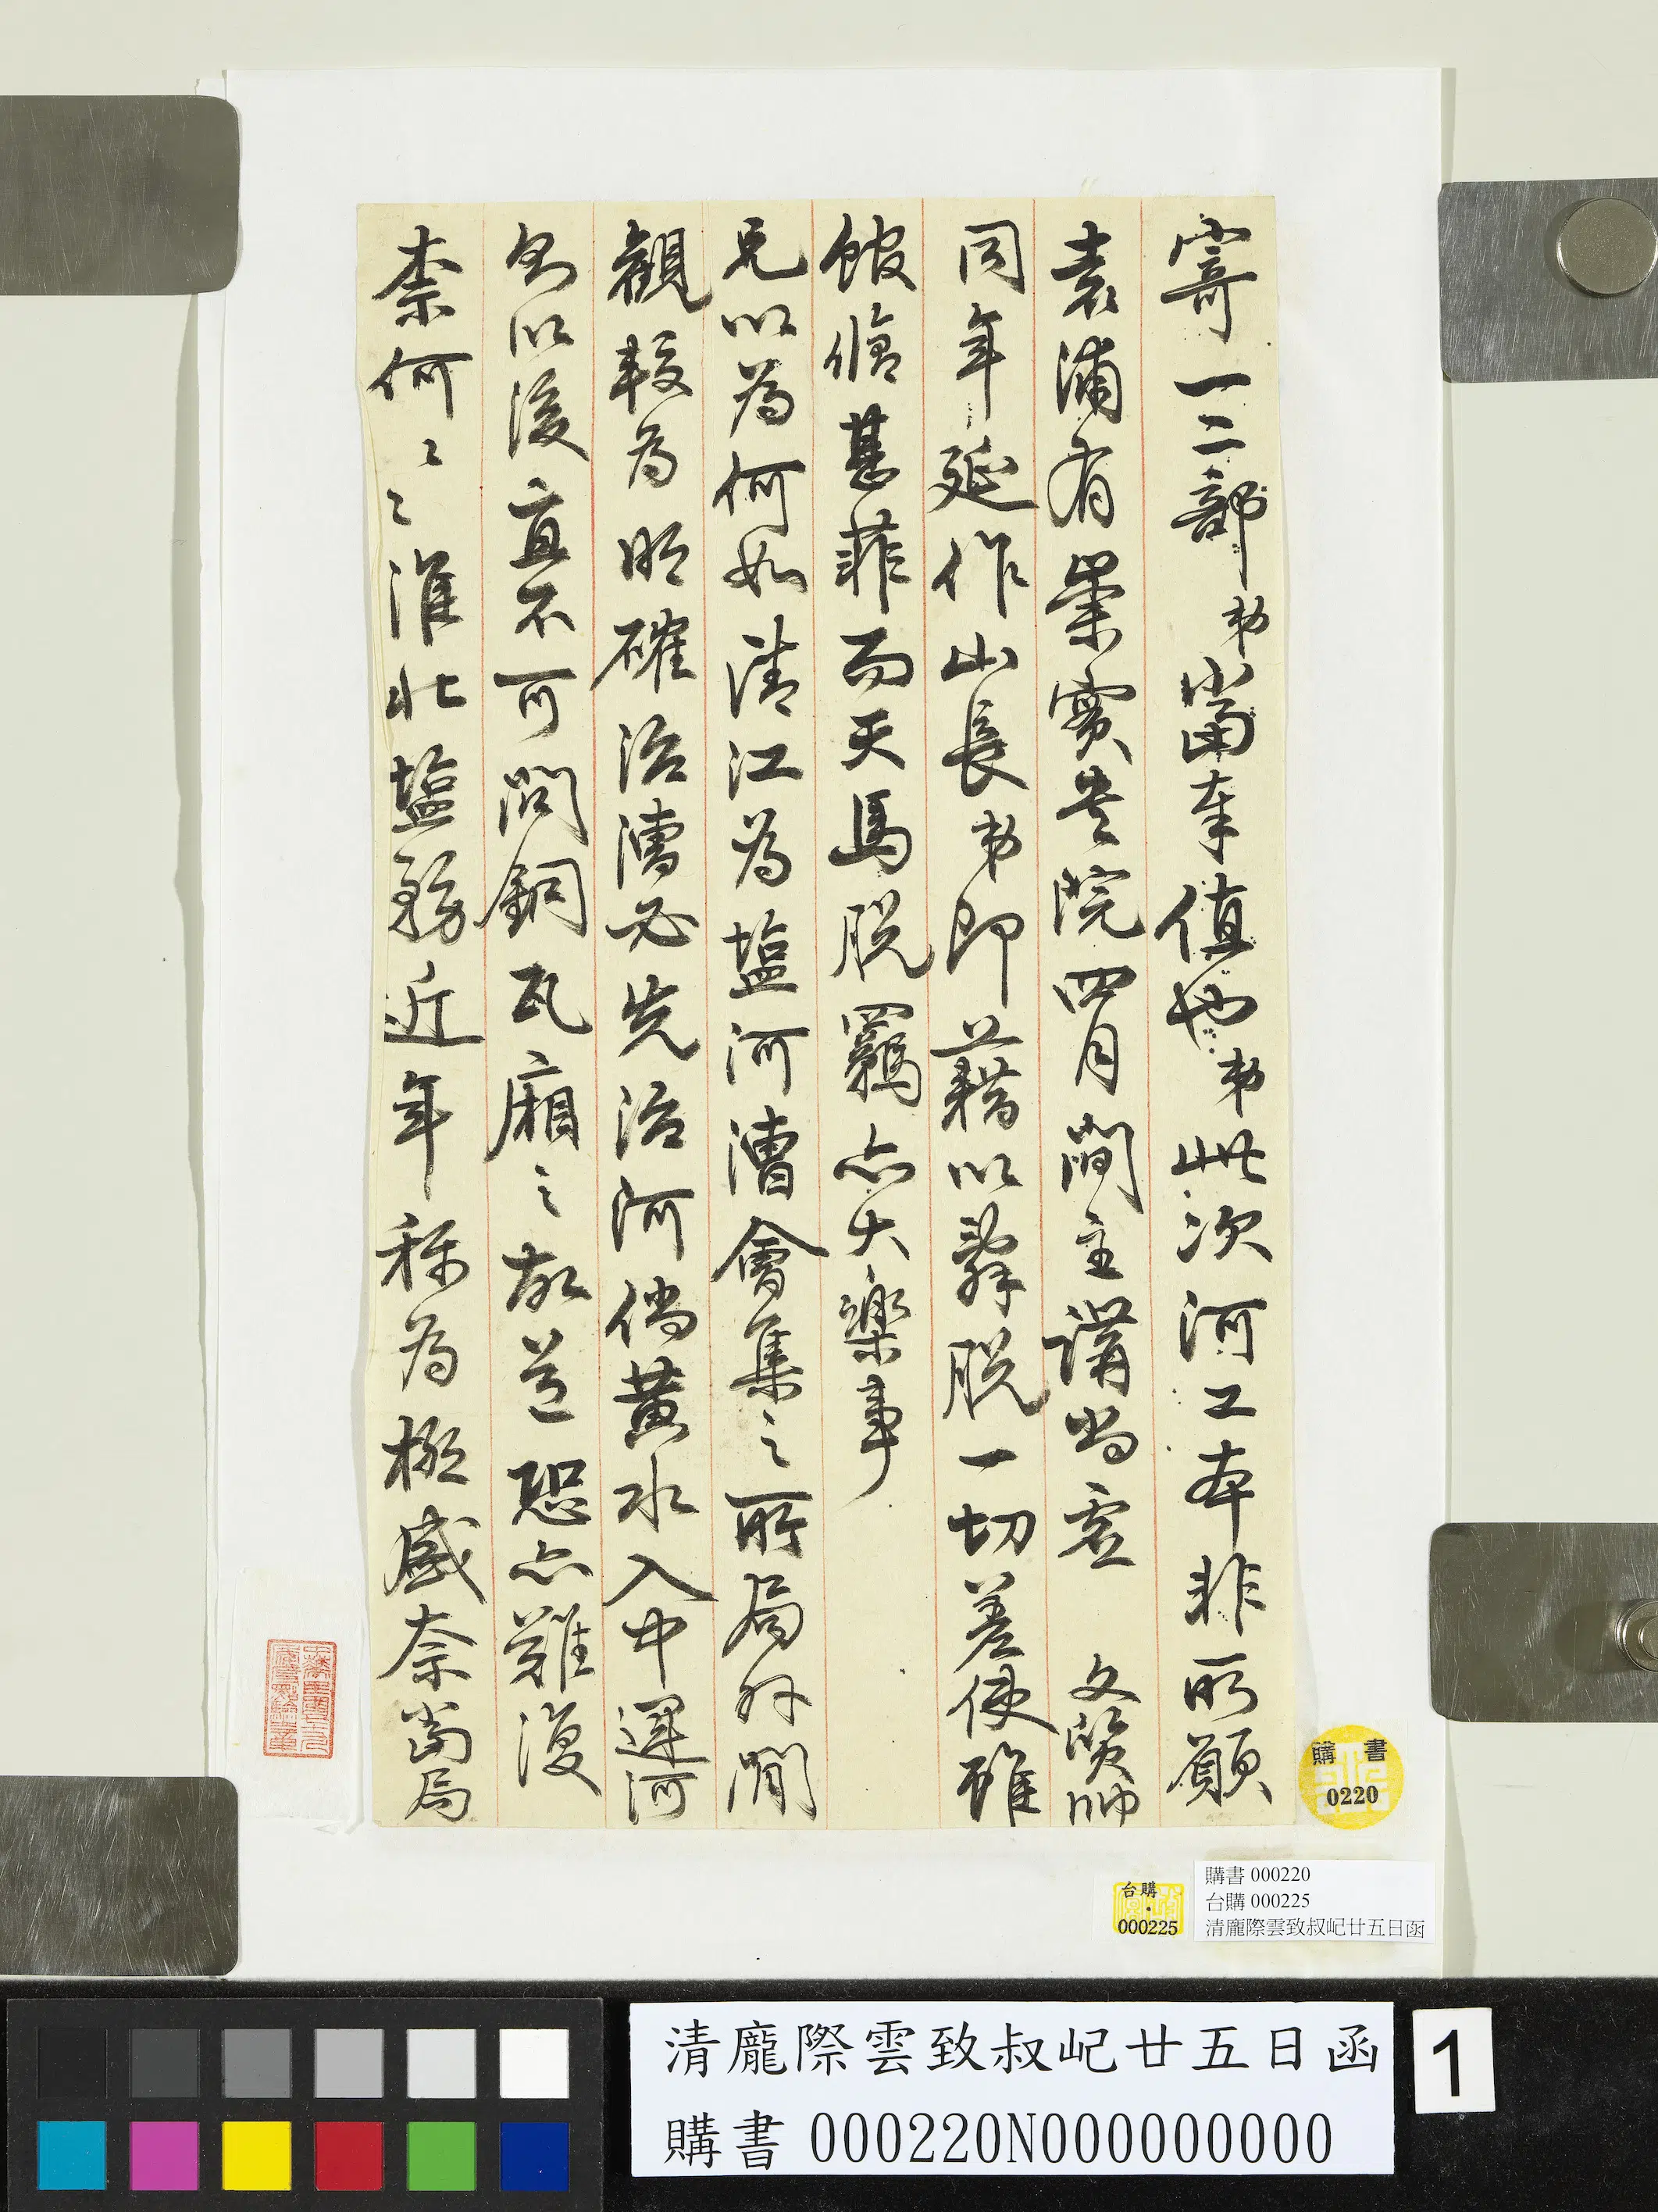 寄一二部弟當奉值也弟此次河工本非所願
袁浦有崇實書院四月間主講尚虛　文質帥
同年延作山長弟即藉以辭脫一切差使雖
館脩甚菲而天馬脫羈亦大樂事
兄以為何如清江為鹽河漕會集之所局外閒
觀較為明確治漕必先治河倘黃水入中運河
以後直不可問銅瓦廂之故道恐亦難復
奈何〻〻淮北鹽務近年稱為極盛奈當局
購書
0220
台購
000225
購書 000220
台購 000225
清龐際雲致叔屺廿五日函
清龐際雲致叔屺廿五日函
購書 000220N000000000
1